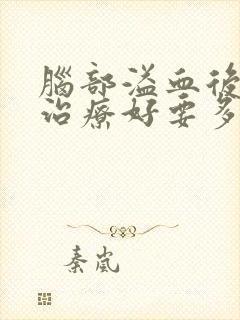 腦部溢血後
治療好要多
秦嵐